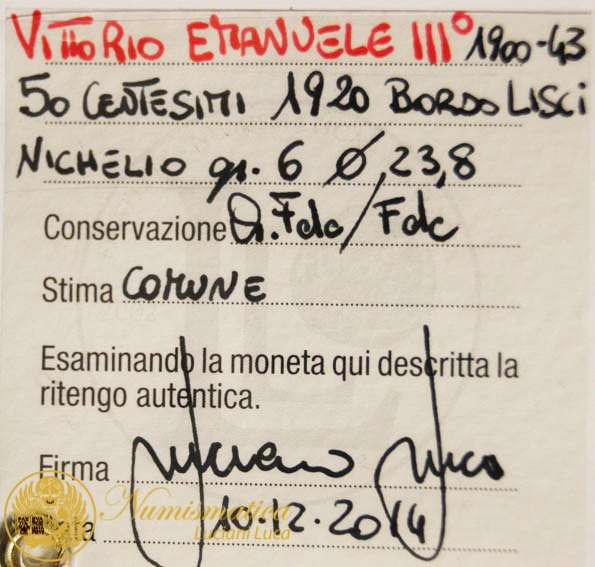 VITTORIO EMANUELE III° 1900-43
50 CENTESIMI 1920 BORDO LISCI
NICHELIO gr. 6 Ø 23,8
Conservazione Q.Fdc/Fdc
Stima COMUNE
Esaminando la moneta qui descritta la
ritengo autentica.
Firma Luciani Luca
Numismatica
Luciani Luca
10.12.2014